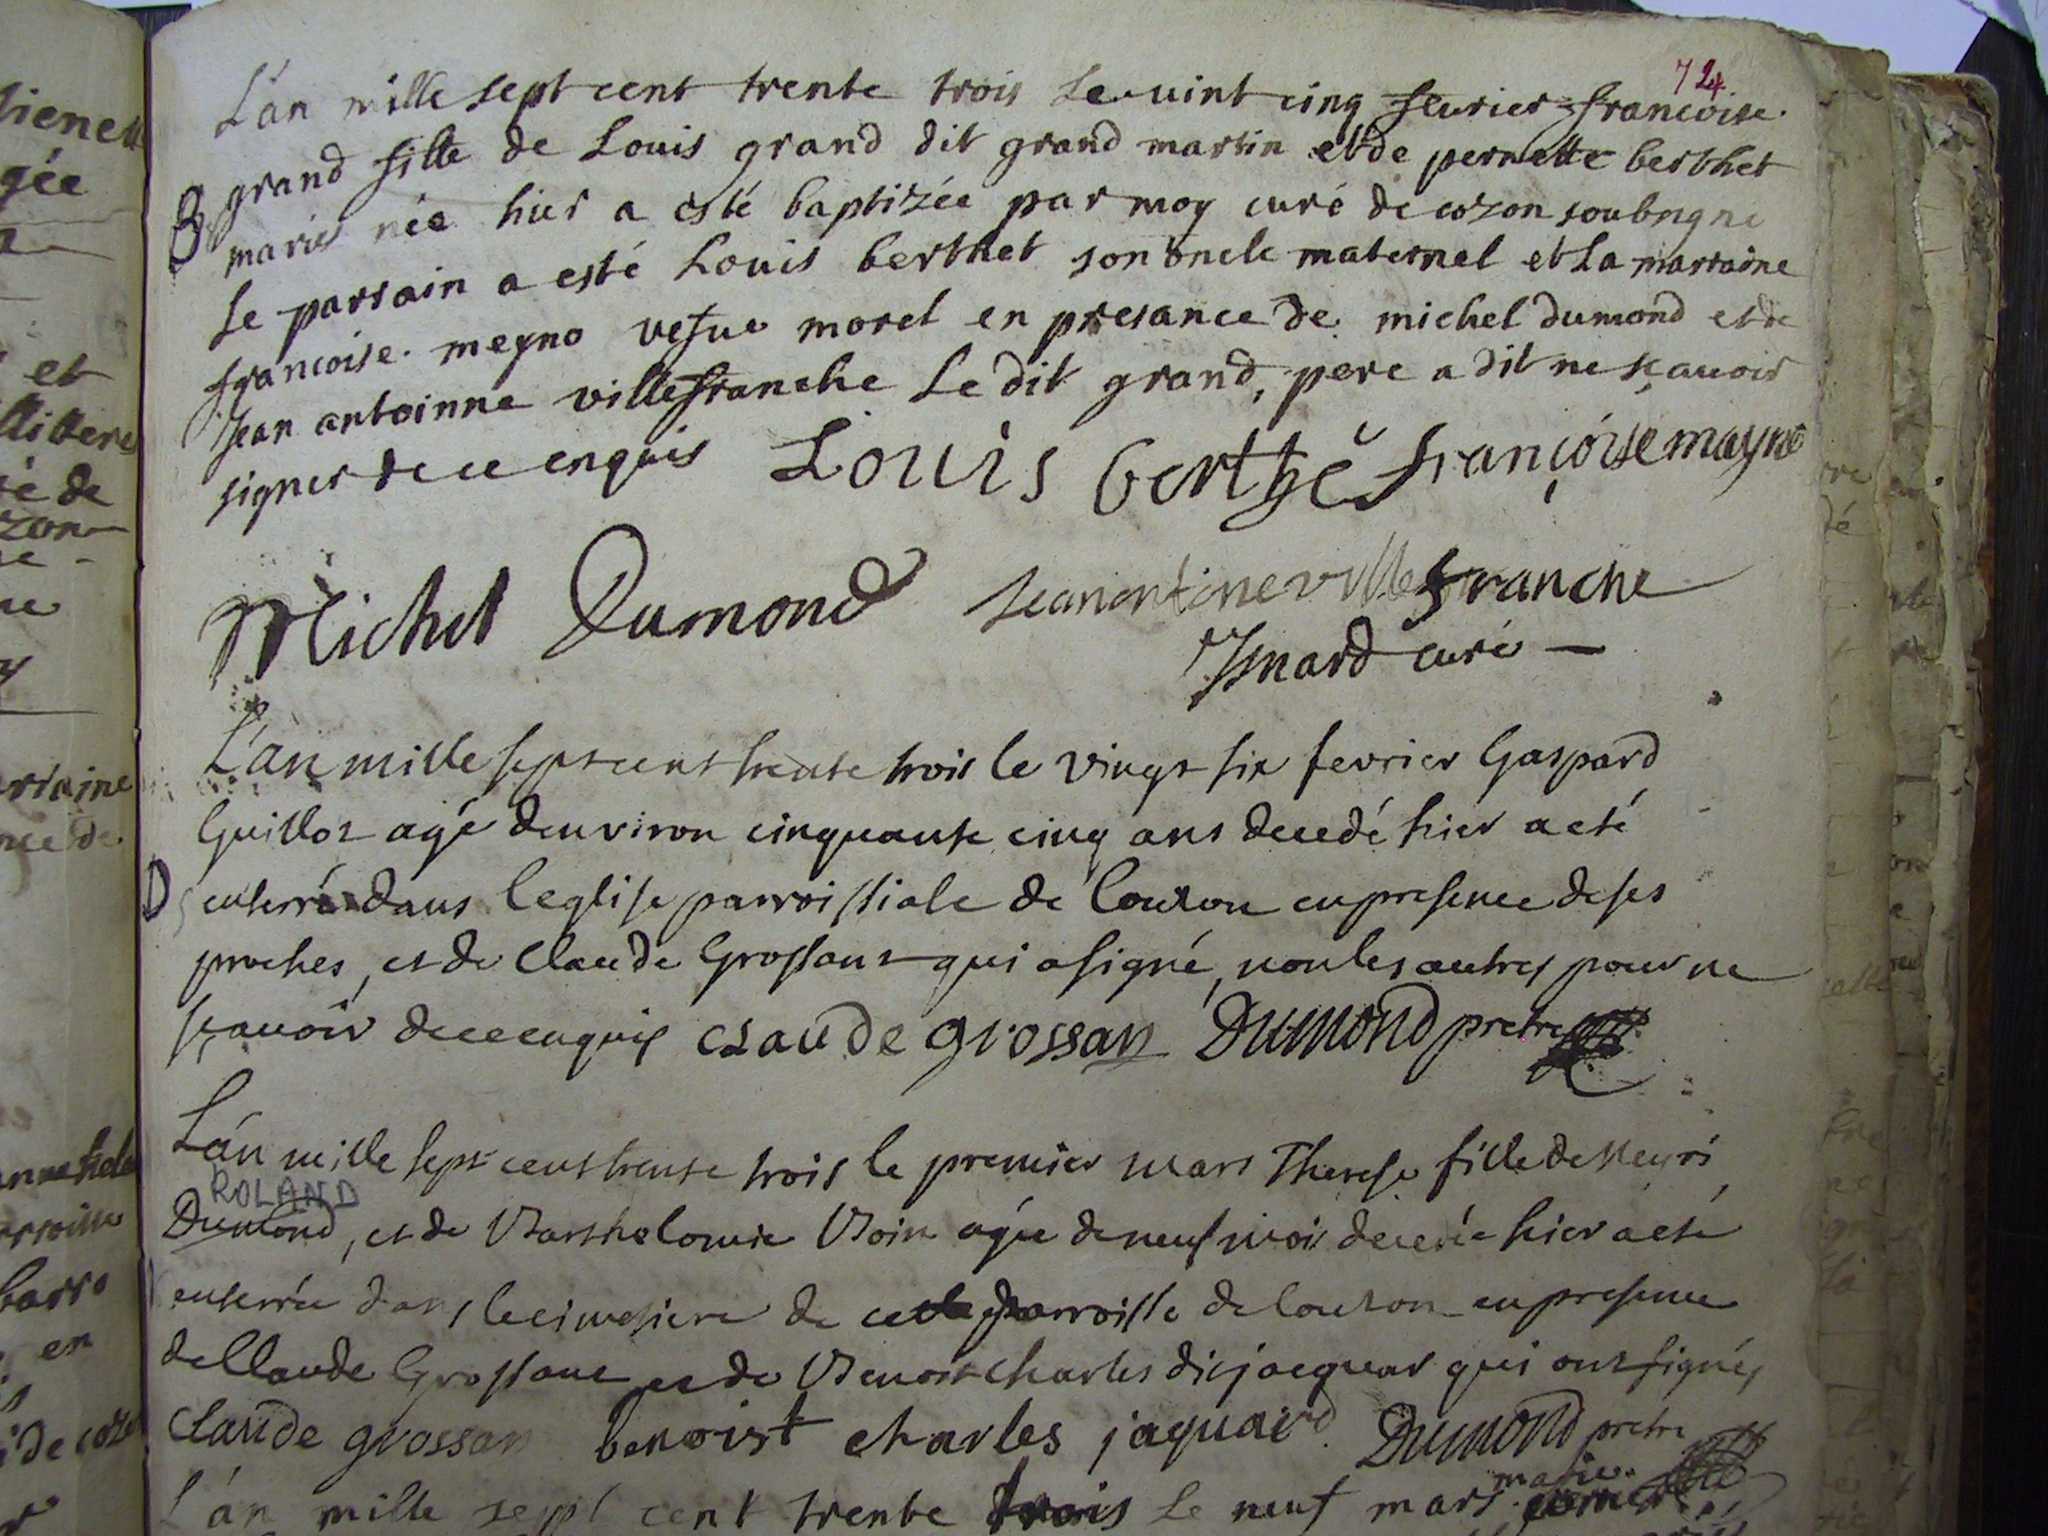 72
L'an mille sept cent trente trois Le vint cinq feurier francoise
grand fille de Louis grand dit grand martin et de pernette berthet
B
mariés née hier a esté baptizée par moy curé de cozon soubsigne
Le parrain a esté Louis berthet son oncle maternel et La marraine
francoise meyno vefue morel en presance de michel dumond et de
Jean antoinne villefranche Le dit grand, pere a dit ne sçauoir
signer de ce enquis Louis berthé françoise mayno
Michel Dumond Jean antoine villefranche
Isnard curé
L'an mille sept cent trente trois le vingt six fevrier Gaspard
Guillot agé denviron cinquante cinq ans decedé hier a eté
D
enterré dans leglise parroissiale de Couzon en presence de ses
proches, et de Claude Grossant qui a signé, non les autres pour ne
sçauoir de ce enquis CLaude grossan Dumond pretre
L'an mille sept cent trente trois le premier mars Therese fille de
ROLAND
Dumond, et de Barthelomie agée de neuf mois decedée hier a eté
enterrée dans le cimetiere de cette parroisse de Couzon en presence
de Claude Grossant et de Benoit Charles dit jacquar qui ont signés
CLaude grossan benoist charles jaquaird Dumond pretre
matie
L'an mille sept cent trente trois Le neuf mars